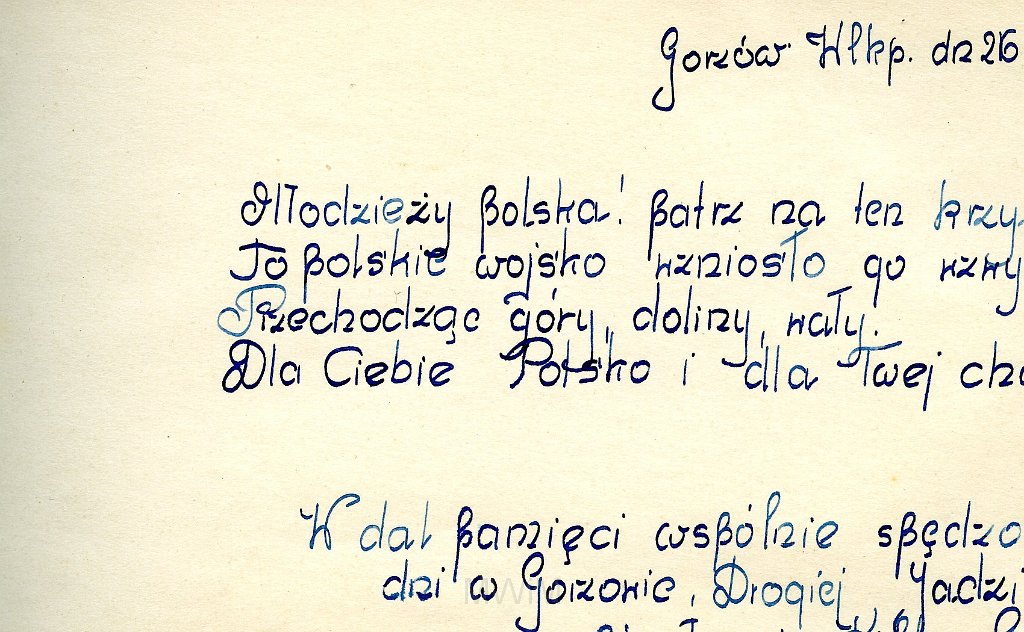 Gorzów Wlkp. dn 26
Młodzieży Polska! Patrz na ten krzy
To Polskie wojsko wzniosło go wzwy
Przechodząc góry, doliny, wały.
Dla Ciebie Polsko i dla Twej ch
W dal pamięci wspólnie spędzo
dni w Gorzowie, Drogiej Jadzi